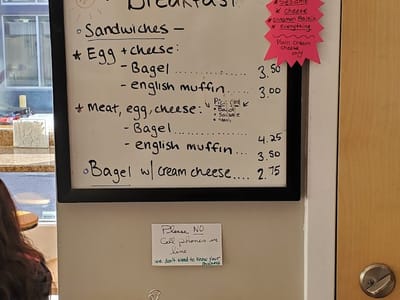 Breakfast
Sandwiches —
* Egg + cheese:
- Bagel .......... 3.50
- english muffin... 3.00
* Meat, egg, cheese:
- Bagel .......... 4.25
- english muffin... 3.50
Bagel w/ cream cheese.... 2.75
* Sesame
* Cheese
* Cinnamon Raisin
* Everything
Plain Cream
Cheese
only
Please NO
Cell phones in
line
we don't need to know your
business